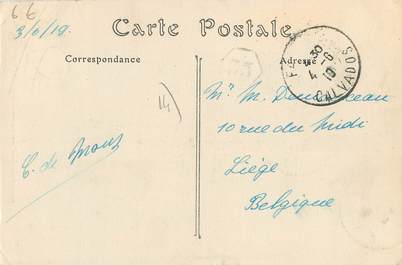 6€
3/6/19.
Carte Postale
Correspondance
Adresse
14
30
4-6
19
CALVADOS
Mr M.
10 rue du Midi
Liége
Belgique
C. de